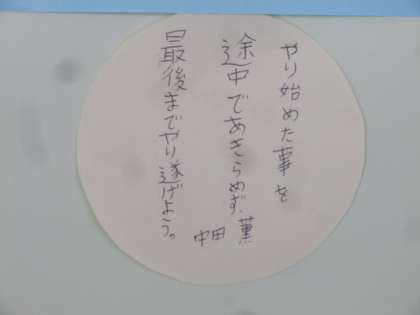 やり始めた事を
途中であきらめず、
最後までやり遂げよう。
中田 薫